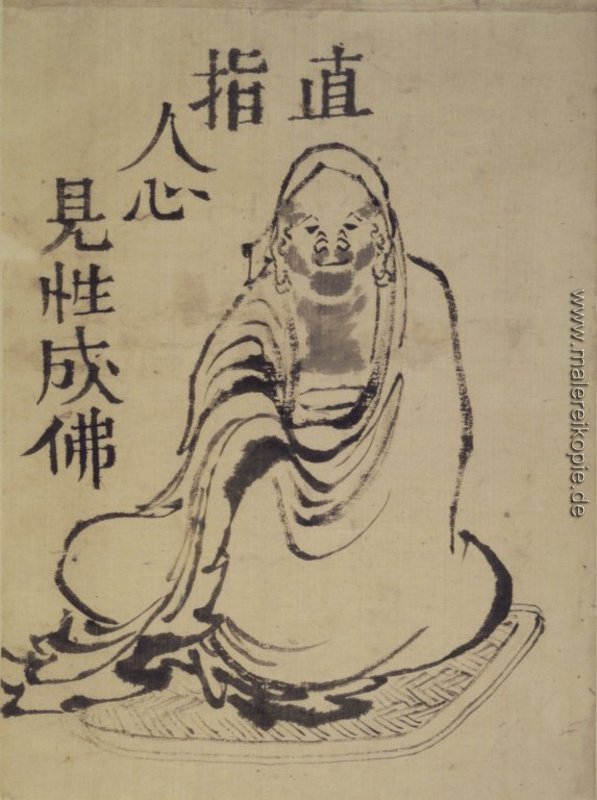 直指
人心
見性成佛
www.malereikopie.de